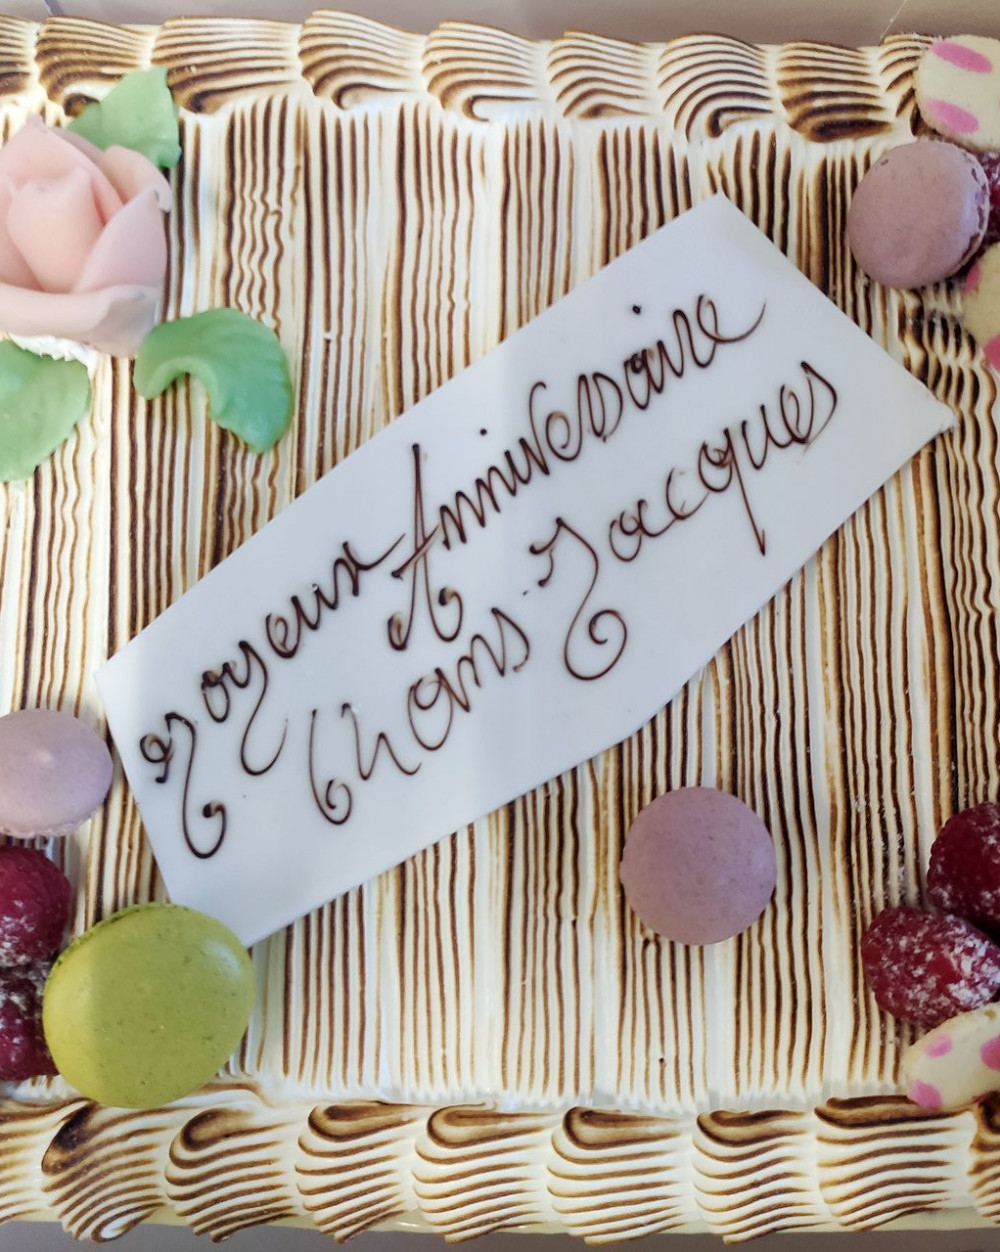 Joyeux Anniversaire
A
Chans-Jacques